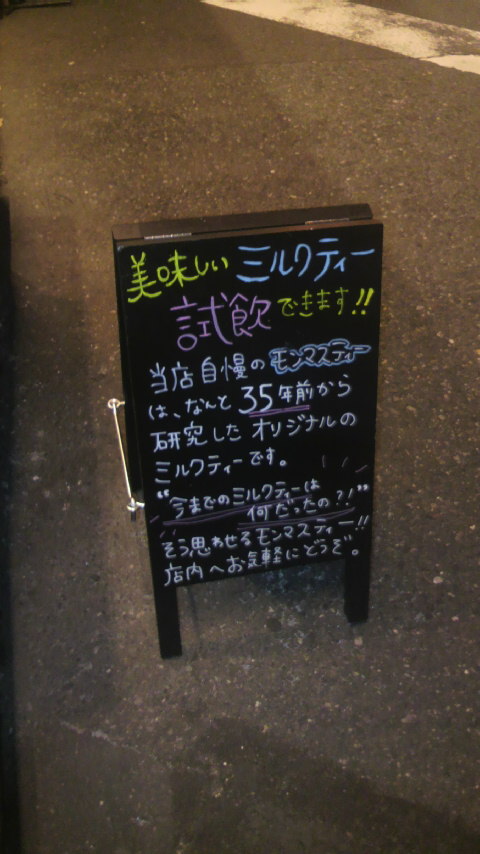 美味しい ミルクティー
試飲できます!!
当店自慢のモンマスティー
は、なんと 35年前から
研究した オリジナルの
ミルクティーです。
“今までのミルクティーは
何だったの?!”
そう思わせるモンマスティー!!
店内へお気軽にどうぞ。